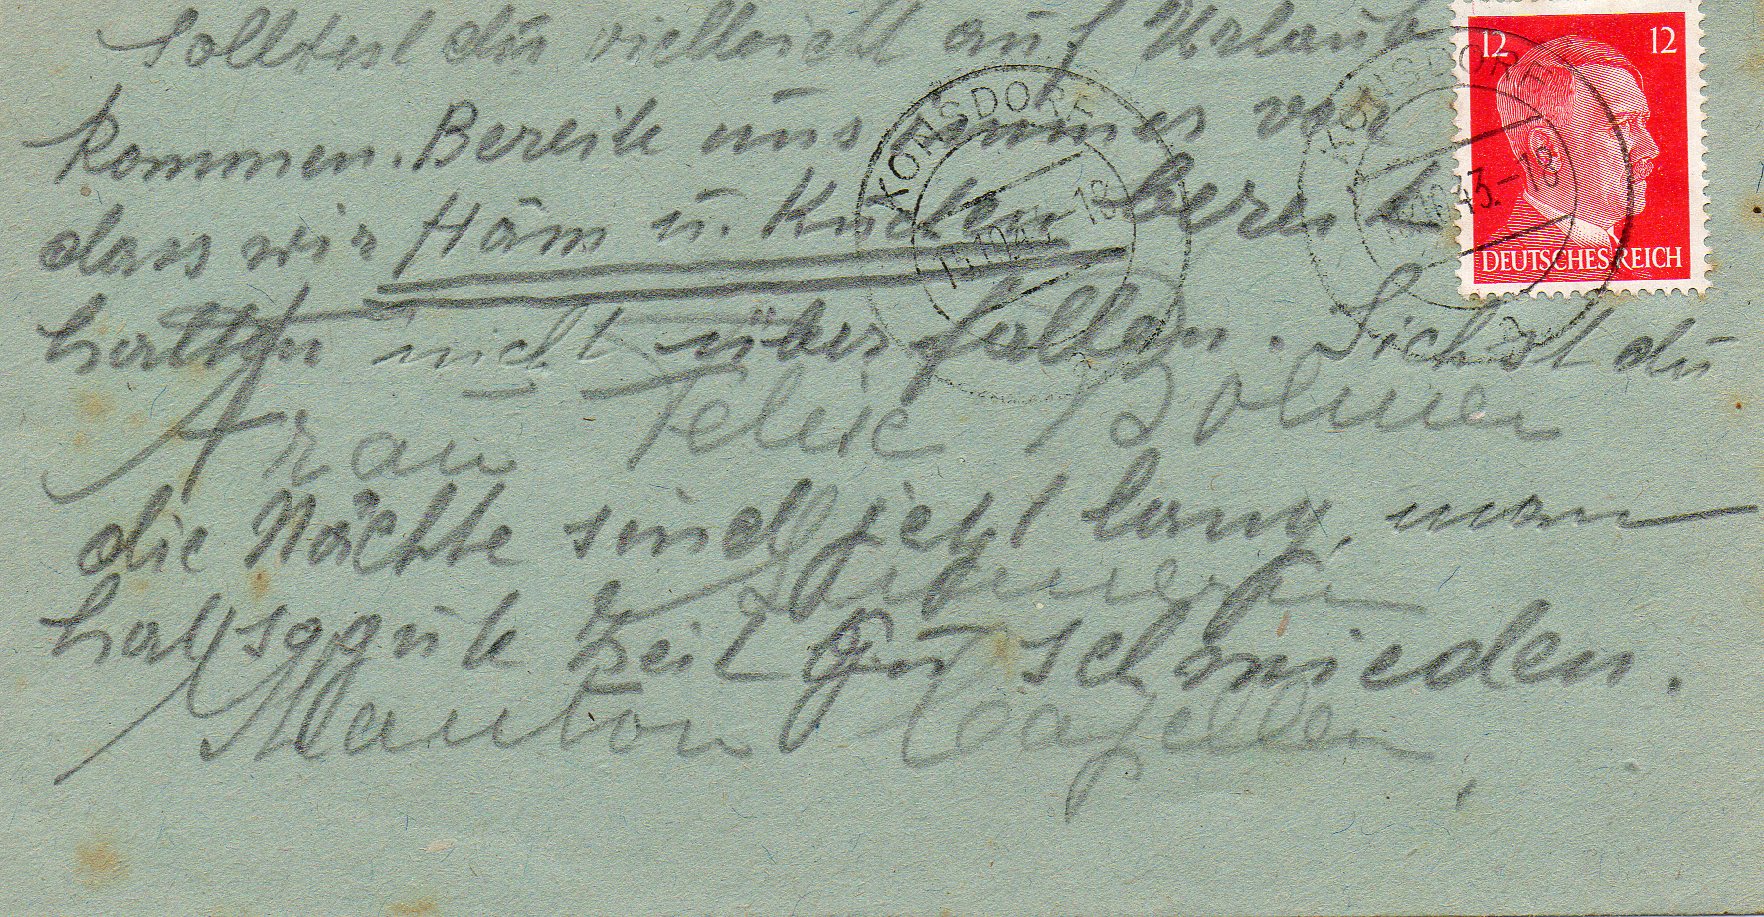 Solltest du vielleicht auf Urlaub
kommen. Bereite uns immer vor
dass wir Häm u. Kuchen bereit
hatten nicht überfallen. Siehst du
Frau Felix Bolmer
die Nächte sind jetzt lang, man
hat so gute Zeit zu schmieden.
Kanton
12 12
DEUTSCHES REICH
KONSDORF
KONSDORF
43.-18